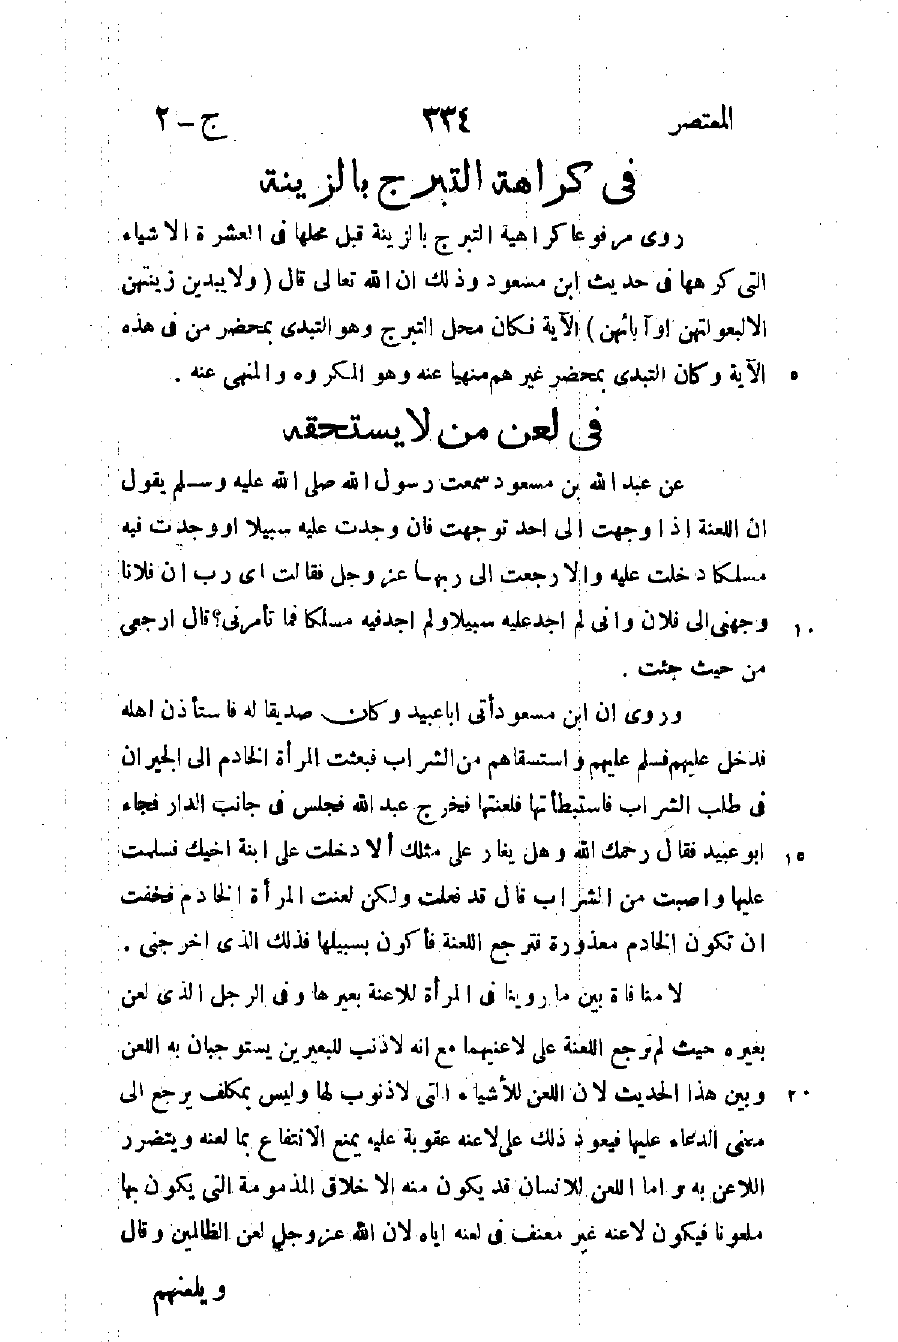 المعتصر ٣٣٤ ج – ٢
فى كراهة التبرج بالزينة
روى مرفوعا كراهية التبرج بالزينة قبل محلها فى العشرة الاشياء
التى كرهها فى حديث ابن مسعود وذلك ان الله تعالى قال ( ولا يبدين زينتهن
الا لبعولتهن او آبائهن ) الآية فكان محل التبرج وهو التبدى بمحضر من فى هذه
٥ الآية وكان التبدى بمحضر غيرهم منهيا عنه وهو المكروه والمنهى عنه .
فى لعن من لا يستحقه
عن عبد الله بن مسعود سمعت رسول الله صلى الله عليه وسلم يقول
ان اللعنة اذا وجهت الى احد توجهت فان وجدت عليه سبيلا او وجدت فيه
مسلكا دخلت عليه والا رجعت الى ربها عز وجل فقالت اى رب ان فلانا
١٠ وجهنى الى فلان وانى لم اجد عليه سبيلا ولم اجد فيه مسلكا فما تأمرنى؟ قال ارجعى
من حيث جئت .
وروى ان ابن مسعود أتى ابا عبيد وكان صديقا له فاستأذن اهله
فدخل عليهم فسلم عليهم واستسقاهم من الشراب فبعثت المرأة الخادم الى الجيران
فى طلب الشراب فاستبطأتها فلعنتها فخرج عبد الله فجلس فى جانب الدار فجاء
١٥ ابو عبيد فقال رحمك الله وهل يغار على مثلك ألا دخلت على ابنة اخيك فسلمت
عليها واصبت من الشراب قال قد فعلت ولكن لعنت المرأة الخادم فخفت
ان تكون الخادم معذورة فترجع اللعنة فأكون بسبيلها فذلك الذى اخرجنى .
لا منافاة بين ما روينا فى المرأة للاعنة بعيرها وفى الرجل الذى لعن
بغيره حيث لم ترجع اللعنة على لاعنيهما مع انه لا ذنب للبعيرين يستوجبان به اللعن
٢٠ وبين هذا الحديث لان اللعن للأشياء التى لا ذنوب لها وليس بمكلف يرجع الى
معنى الدعاء عليها فيعود ذلك على لاعنه عقوبة عليه يمنع الانتفاع بما لعنه ويتضرر
اللاعن به واما اللعن للانسان قد يكون منه الاخلاق المذمومة التى يكون بها
ملعونا فيكون لاعنه غير معنف فى لعنه اياه لان الله عز وجل لعن الظالمين وقال
ويلعنهم